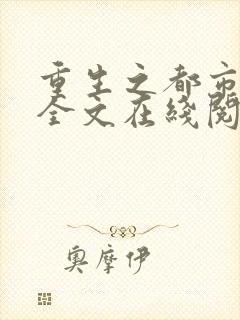 重生之都市
全文在线阅
奥摩伊